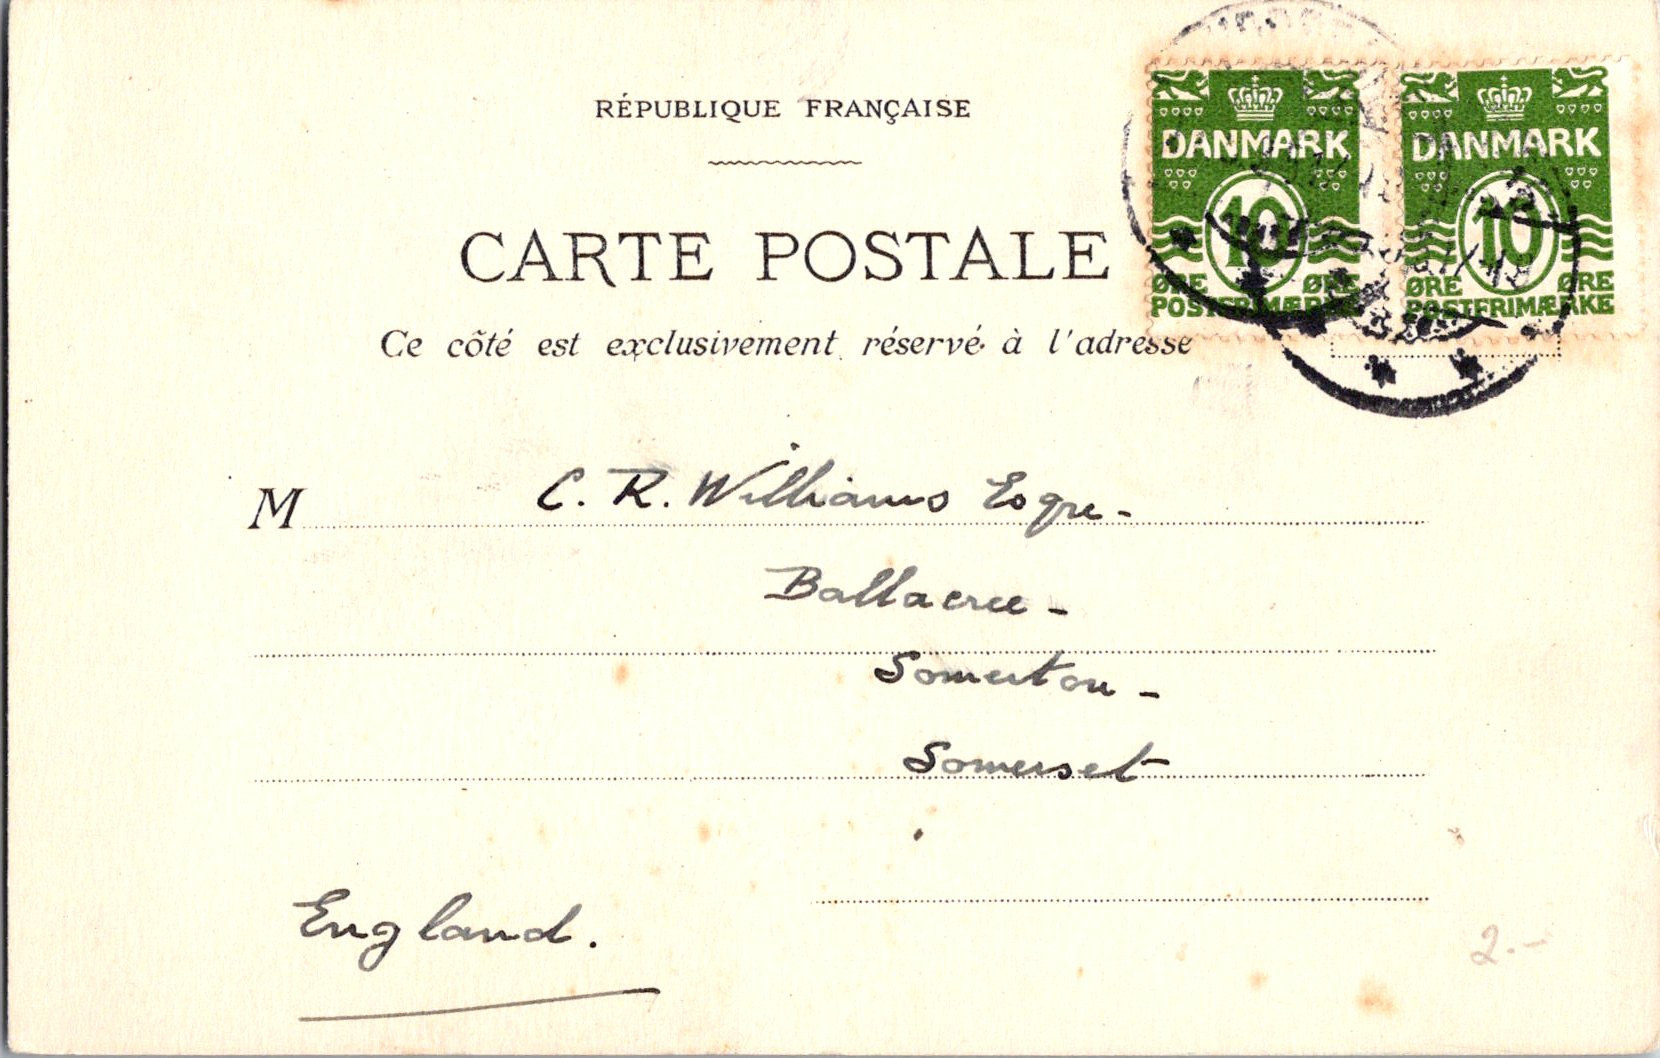 RÉPUBLIQUE FRANÇAISE
CARTE POSTALE
Ce côté est exclusivement réservé à l'adresse
DANMARK
10
ØRE ØRE
POSTFRIMÆRKE
DANMARK
10
ØRE ØRE
POSTFRIMÆRKE
M C. R. Williams Esqre-
Ballacree -
Somerton -
Somerset
England.
2.-